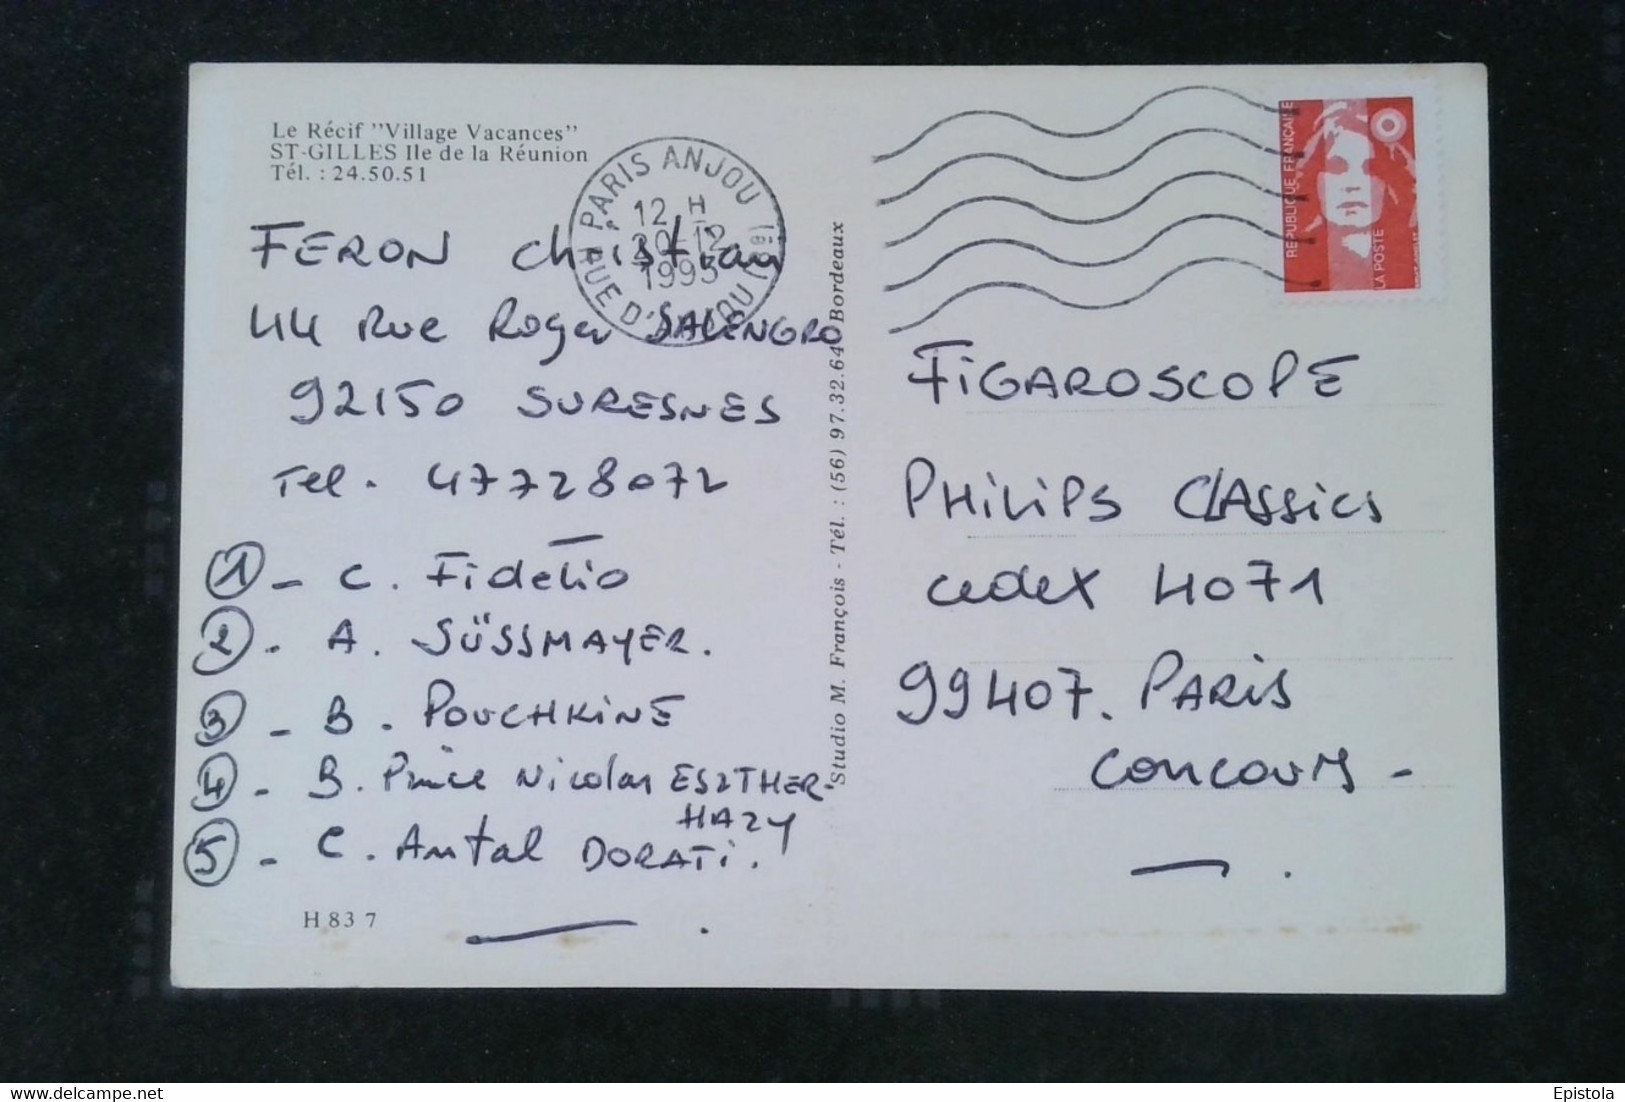 Le Récif "Village Vacances"
ST-GILLES Ile de la Réunion
Tél. : 24.50.51
PARIS ANJOU (8è)
12 H
20-12
1993
RUE D'ANJOU
REPUBLIQUE FRANÇAISE
LA POSTE
FERON Christian
44 Rue Roger SALENGRO
92150 SURESNES
Tel. 47728072
1 - C. Fidelio
2 - A. SÜSSMAYER.
3 - B. POUCHKINE
4 - B. Prince Nicolas ESZTHER-
HAZY
5 - C. Antal DORATI.
H 83 7
Studio M. François - Tél. : (56) 97.32.64 Bordeaux
FIGAROSCOPE
PHILIPS CLASSICS
cedex 4071
99407. PARIS
CONCOURS -
delcampe.net
Epistola